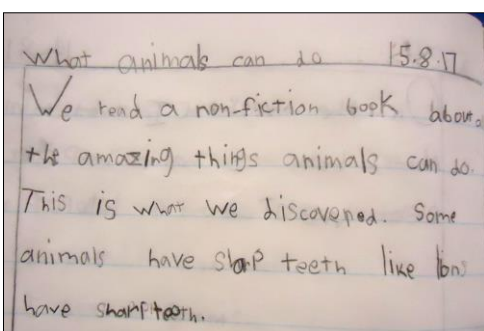 What animals can do 15.8.17
We read a non-fiction book about
the amazing things animals can do.
This is what we discovered. Some
animals have sharp teeth like lions
have sharp teeth.